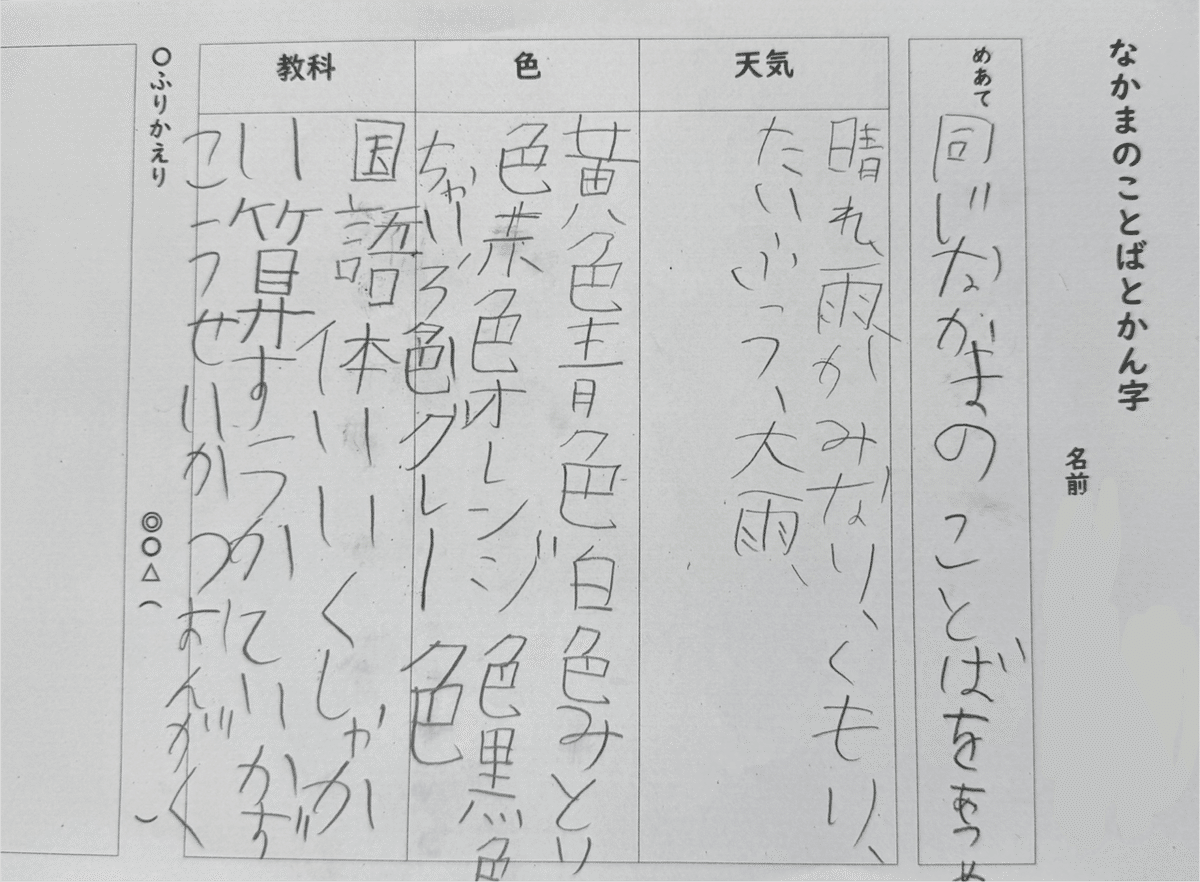 なかまのことばとかん字
名前
めあて
同じなかまのことばをあつめ
天気
晴れ、雨、かみなり、くもり、
たいふう、大雨、
色
黄色青色白色みとり
色赤色オレンジ色黒色
ちゃいろ色グレー色
教科
国語体いいくしゃか
い算すうかていかず
こうせいかつおんがく
○ふりかえり
◎○△( )